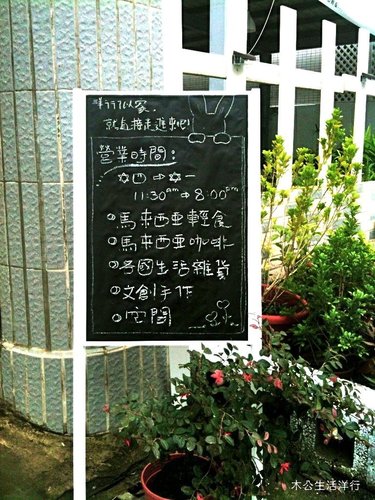 就直接走進來吧!
營業時間:
✡四⇨✡一
11:30am→8:00pm
馬來西亞輕食
馬來西亞咖啡
各國生活雜貨
文創手作
空間
木公生活洋行